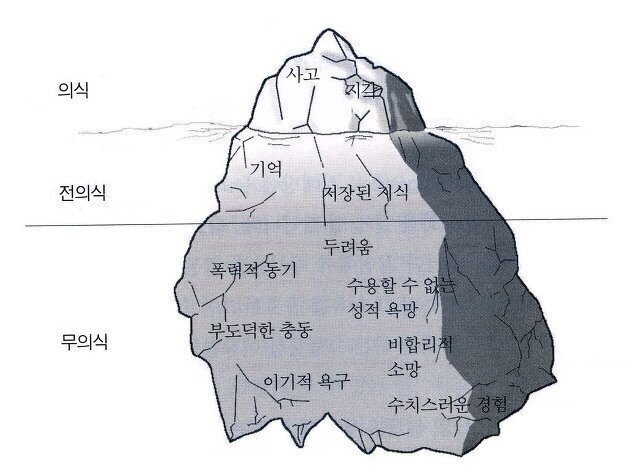 의식
사고
지각
기억
전의식
저장된 지식
두려움
폭력적 동기
수용할 수 없는
성적 욕망
부도덕한 충동
무의식
비합리적
소망
이기적 욕구
수치스러운 경험